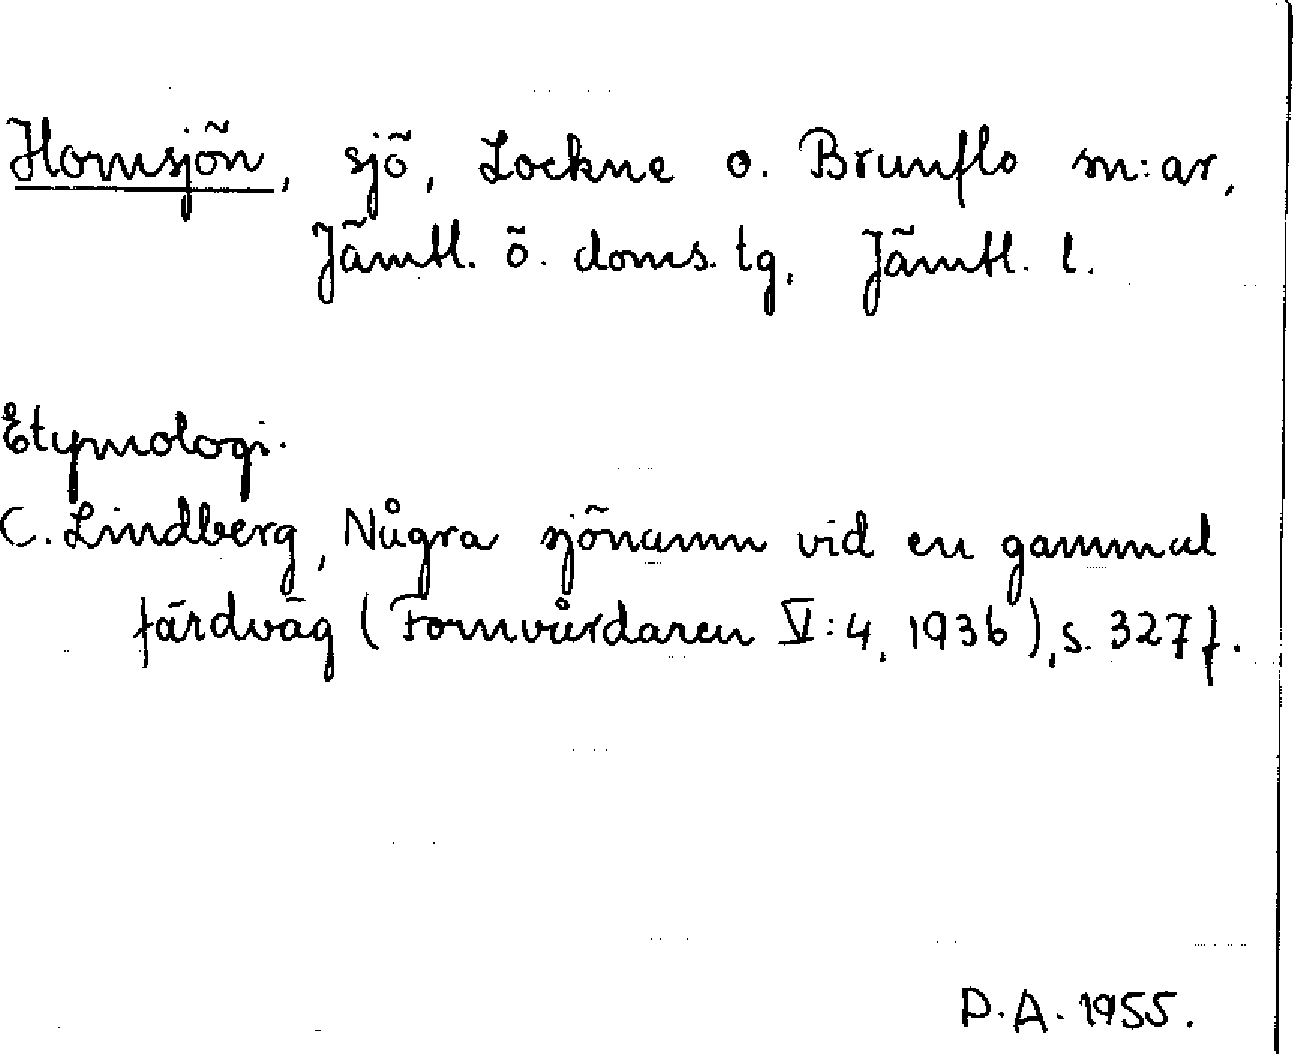 Hornsjön, sjö, Lockne o. Brunflo sn:ar,
Jämtl. ö. doms. tg, Jämtl. l.
Etymologi.
C. Lindberg, Några sjönamn vid en gammal
färdväg (Fornvårdaren V:4, 1936), s. 327 f.
D.A. 1955.